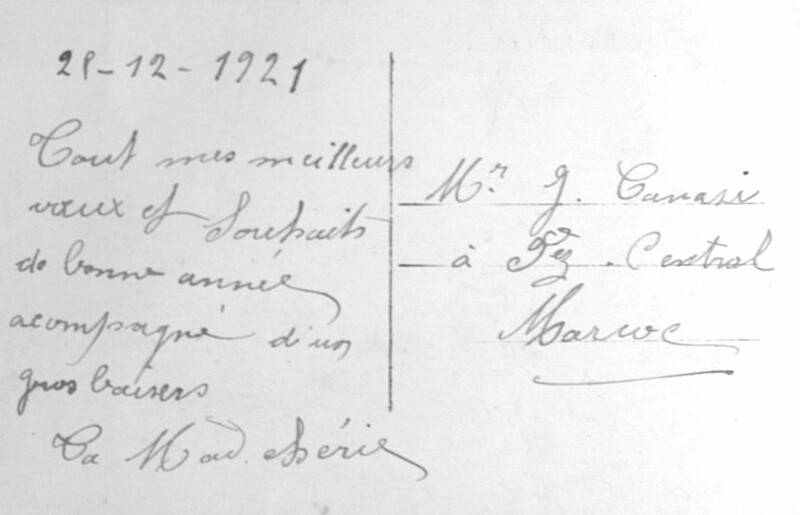 28-12-1921
Tout mes meilleurs
vœux et Souhaits
de bonne année
acompagné d'un
gros baisers
Ta Mad. chérie
Mr. J. Canasi
à Fez. Central
Maroc